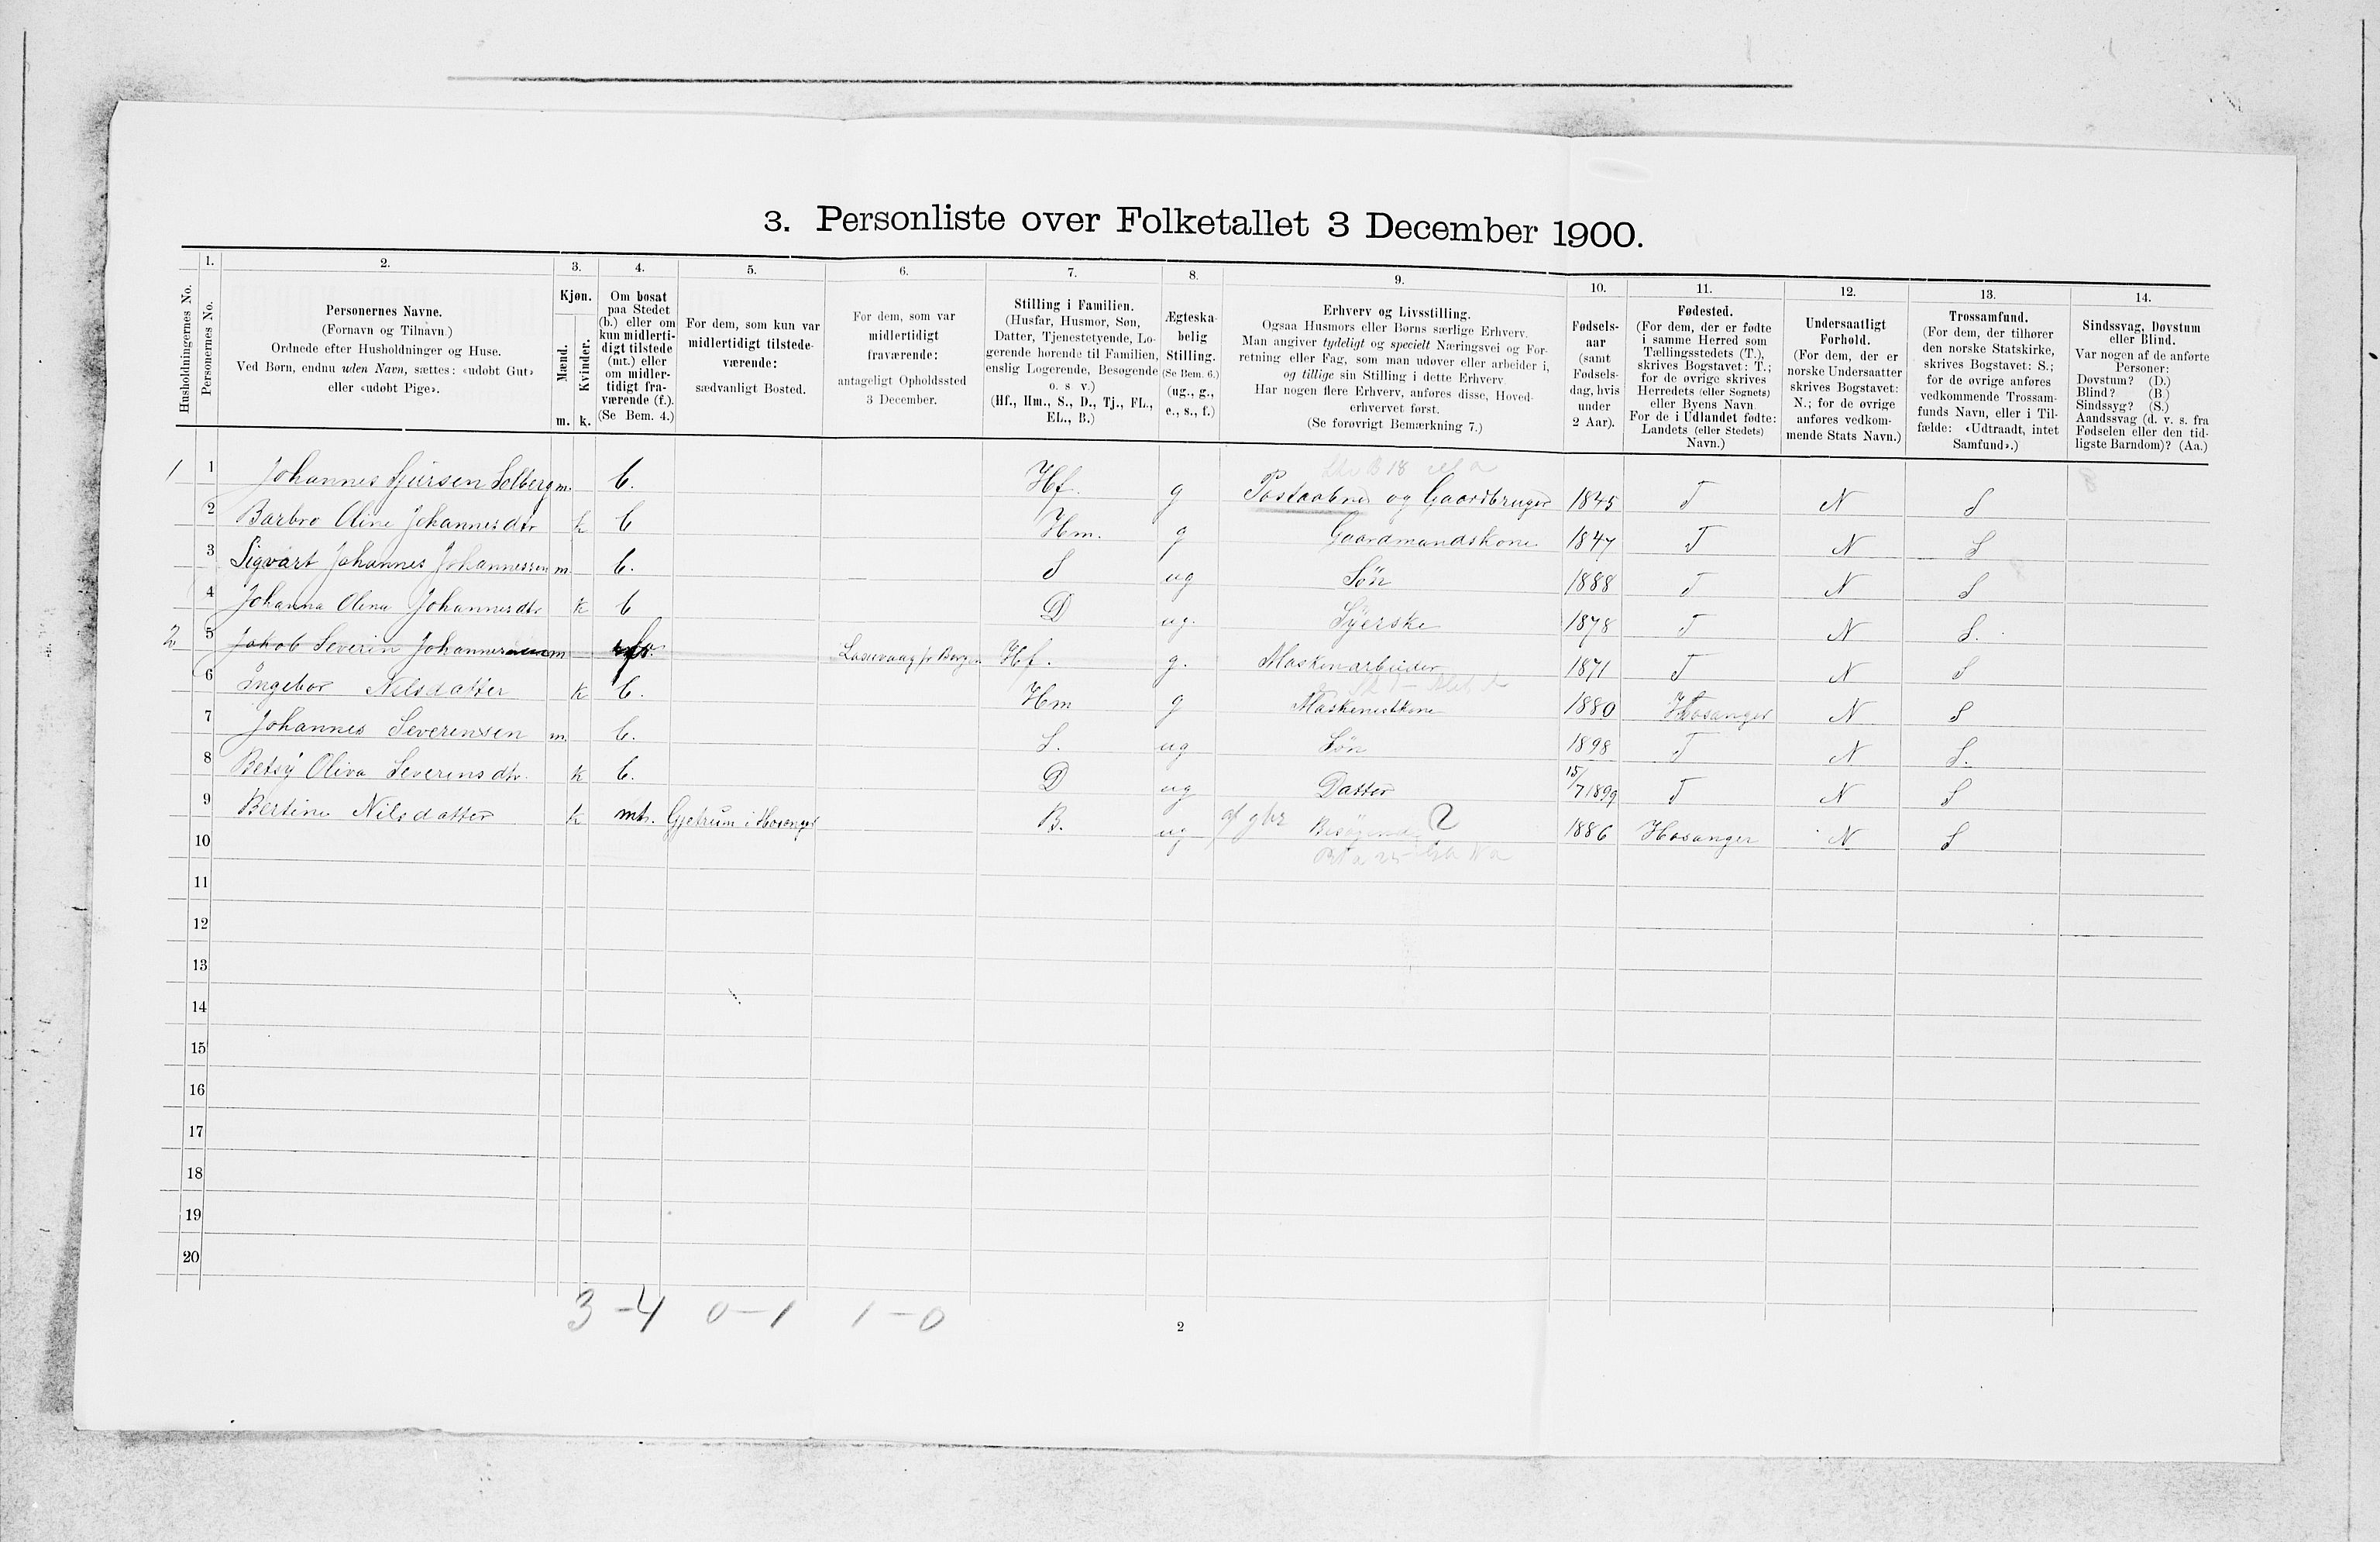 3. Personliste over Folketallet 3 December 1900.
1. 2. 3. 4. 5. 6. 7. 8. 9. 10. 11. 12. 13. 14.
Husholdningernes No.
Personernes No.
Personernes Navne.
(Fornavn og Tilnavn.)
Ordnede efter Husholdninger og Huse.
Ved Børn, endnu uden Navn, sættes: «udøbt Gut»
eller «udøbt Pige».
Kjøn.
Mænd.
Kvinder.
m. k.
Om bosat
paa Stedet
(b.) eller om
kun midlerti-
digt tilstede
(mt.) eller
om midler-
tidigt fra-
værende (f.).
(Se Bem. 4.)
For dem, som kun var
midlertidigt tilstede-
værende:
sædvanligt Bosted.
For dem, som var
midlertidigt
fraværende:
antageligt Opholdssted
3 December.
Stilling i Familien.
(Husfar, Husmor, Søn,
Datter, Tjenestetyende, Lo-
gerende hørende til Familien,
enslig Logerende, Besøgende
o. s. v.)
(Hf., Hm., S., D., Tj., FL.,
EL., B.)
Ægteska-
belig
Stilling.
(Se Bem. 6.)
(ug., g.,
e., s., f.)
Erhverv og Livsstilling.
Ogsaa Husmors eller Børns særlige Erhverv.
Man angiver tydeligt og specielt Næringsvei og For-
retning eller Fag, som man udøver eller arbeider i,
og tillige sin Stilling i dette Erhverv.
Har nogen flere Erhverv, anføres disse, Hoved-
erhvervet først.
(Se forøvrigt Bemærkning 7.)
Fødsels-
aar
(samt
Fødsels-
dag, hvis
under
2 Aar).
Fødested.
(For dem, der er fødte
i samme Herred som
Tællingsstedets (T.),
skrives Bogstavet: T.;
for de øvrige skrives
Herredets (eller Sognets)
eller Byens Navn
For de i Udlandet fødte:
Landets (eller Stedets)
Navn.)
Undersaatligt
Forhold.
(For dem, der er
norske Undersaatter
skrives Bogstavet:
N.; for de øvrige
anføres vedkom-
mende Stats Navn.)
Trossamfund.
(For dem, der tilhører
den norske Statskirke,
skrives Bogstavet: S.;
for de øvrige anføres
vedkommende Trossam-
funds Navn, eller i Til-
fælde: «Udtraadt, intet
Samfund».)
Sindssvag, Døvstum
eller Blind.
Var nogen af de anførte
Personer:
Døvstum? (D.)
Blind? (B)
Sindssyg? (S.)
Aandssvag (d. v. s. fra
Fødselen eller den tid-
ligste Barndom)? (Aa.)
1 1 Johannes Sjursen Solberg m. b. Hf. g Postaabner og Gaardbruger 1845 T N S
2 Barbro Oline Johannesdtr k b Hm. g Gaardmandskone 1847 T N S
3 Sigvart Johannes Johannessen m b. S ug Søn 1888 T N S
4 Johanna Olina Johannesdtr k b D ug. Syerske 1878 T N S.
2 5 Jakob Severin Johannessen m Hf. g. Maskenarbeider 1871 T N S
6 Ingebor Nelsdatter k b. Hm g Maskenistkone 1880 Hosanger N S
7 Johannes Severensen m. b. S. ug Søn 1898 T N S.
8 Betsy Oliva Severensdtr. k b. D ug Datter 15/7 1899 T N S
9 Bertine Nilsdatter k mt. Gjetrum i Hosanger B. ug Besøgende 1886 Hosanger N S
10
11
12
13
14
15
16
17
18
19
20
3-4 0-1 1-0
2